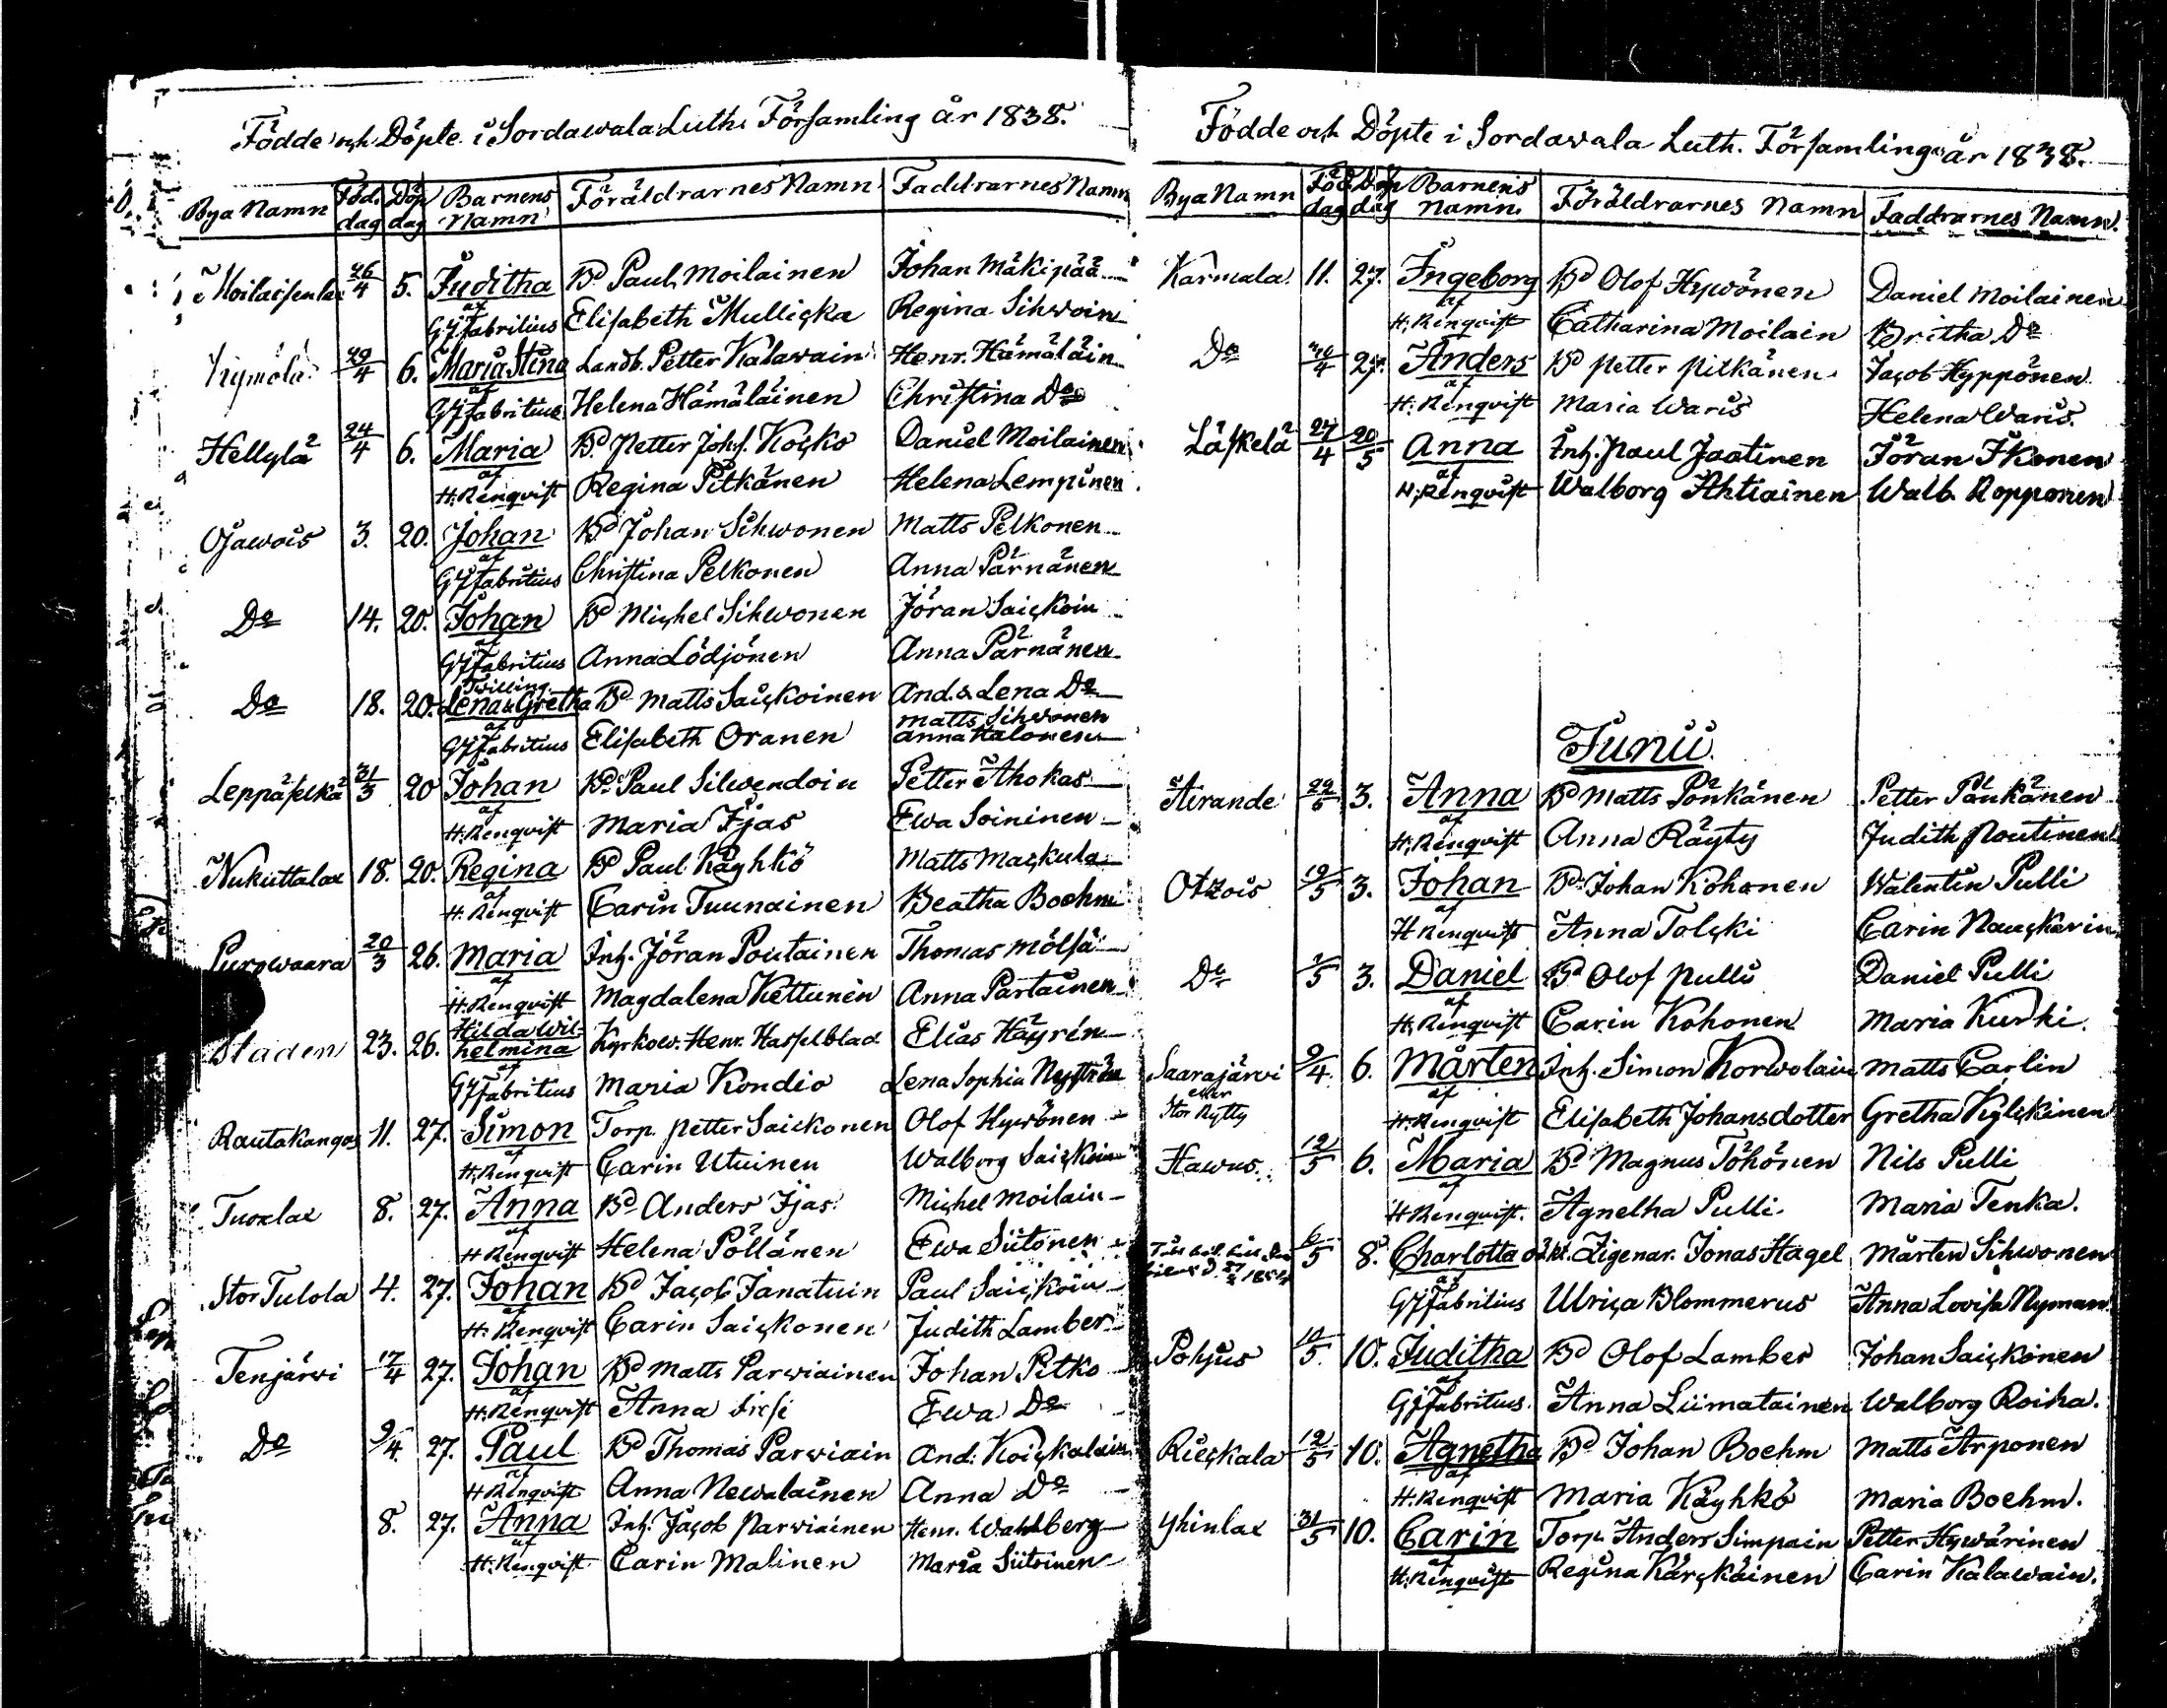 Födde och Döpte i Sordawala Luth. Församling år 1838.
Bya Namn Föd. dag Döp dag Barnens Namn Föräldrarnes Namn Faddrarnes Namn
Moilaisenlax 26/4 5. Juditha Bd Paul Moilainen Johan Mäkipää
af GJFabritius Elisabeth Mulliçka Regina Sihvoin
Kymölä 29/4 6. Maria Stina Landb. Petter Kalawain Henr. Hämäläin
af GJFabritius Helena Hämäläinen Christina Do
Hellylä 24/4 6. Maria Bd Petter Johs. Koçko Daniel Moilainen
af H. Renqvist Regina Pitkänen Helena Lempinen
Ojawois 3. 20. Johan Bd Johan Sihwonen Matts Pelkonen
af GJFabritius Christina Pelkonen Anna Pärnänen
Do 14. 20. Johan Bd Michel Sihwonen Jöran Saiçkoin
af GJFabritius Anna Lödjönen Anna Pärnänen
Twilling.
Do 18. 20. Lena & Gretha Bd Matts Saiçkoinen And. & Lena Do
Matts Sihvonen
af GJFabritius Elisabeth Oranen Anna Halonen
Leppäselkä 21/3 20 Johan Bd Paul Silwendoin Petter Ahokas
af H. Renqvist Maria Ijas Ewa Soininen
Nukuttalax 18. 20. Regina Bd Paul Käyhkö Matts Maçkula
af H. Renqvist Carin Tuunainen Beatha Boehm
Purowaara 20/3 26. Maria Inh. Jöran Poutainen Thomas Mölsä
af H. Renqvist Magdalena Kettunen Anna Partainen
Staden 23. 26. Hilda Wil-
helmina Kyrkow. Henr. Hasselblad Elias Häyrén
af GJFabritius Maria Kondio Lena Sophia Nyström
Rautakangas 11. 27. Simon Torp. Petter Saickonen Olof Hywönen
af H. Renqvist Carin Utuinen Walborg Saiçkoin
Tuoxlax 8. 27. Anna Bd Anders Ijas Michel Moilain
af H Renqvist Helena Pöllänen Ewa Siitonen
Stor Tulola 4. 27. Johan Bd Jacob Janatuin Paul Saiçkoin
af H. Renqvist Carin Saiçkonen Judith Lamber
Tenjärvi 17/4 27. Johan Bd Matts Parwiainen Johan Pitko
af H. Renqvist Anna Ewa Do
Do 9/4 27. Paul Bd Thomas Parwiain And. Koiçkalain
af H Renqvist Anna Newalainen Anna Do
8. 27. Anna Inh. Jacob Parwiainen Henr. Wahlberg
af H. Renqvist Carin Malinen Maria Siitoinen
Födde och Döpte i Sordawala Luth. Församling år 1838.
Bya Namn Föd dag Döp dag Barnens Namn. Föräldrarnes Namn Faddrarnes Namn.
Karmala 11. 27. Ingeborg Bd Olof Hywönen Daniel Moilainen
af H. Renqvist Catharina Moilain Britha Do
Do 20/4 27. Anders Bd Petter Pitkänen Jacob Hyppönen
af H. Renqvist Maria Waris Helena Waris.
Läskelä 27/4 20/5 Anna Inh. Paul Jaatinen Jöran Ikonen
af H. Renqvist Walborg Ahtiainen Walb. Ropponen
Junii.
Airande 22/5 3. Anna Bd Matts Pönkänen Petter Pänkänen
af H. Renqvist Anna Räyty Judith Poutinen
Otzois 19/5 3. Johan Bd Johan Kohonen Walentin Pulli
af H Renqvist Anna Tolçki Carin Nauçkarin
Do 1/5 3. Daniel Bd Olof Pulli Daniel Pulli
af H. Renqvist Carin Kohonen Maria Kurki.
Saarajärvi 9/4. 6. Mårten Inh. Simon Korwolain Matts Carlin
eller Stor Rytty af H. Renqvist Elisabeth Johansdotter Gretha Kyliçkinen
Hawus. 12/5 6. Maria Bd Magnus Töhönen Nils Pulli
af H Renqvist. Agnetha Pulli. Maria Tenka.
6/5 8. Charlotta Zigenar. Jonas Hagel Mårten Sihwonen
af GJFabritius Ulriça Blommerus Anna Lovisa Nyman
Pohjus 10/5. 10. Juditha Bd Olof Lamber Johan Saiçkonen
af GJFabritius. Anna Liimatainen Walborg Roiha.
Rieçkala 12/5 10. Agnetha Bd Johan Boehm Matts Arponen
af H. Renqvist Maria Käyhkö Maria Boehm.
Yhinlax 31/5 10. Carin Torp. Anders Simpain Petter Hywärinen
af H. Renqvist Regina Kärçkäinen Carin Kalawain.